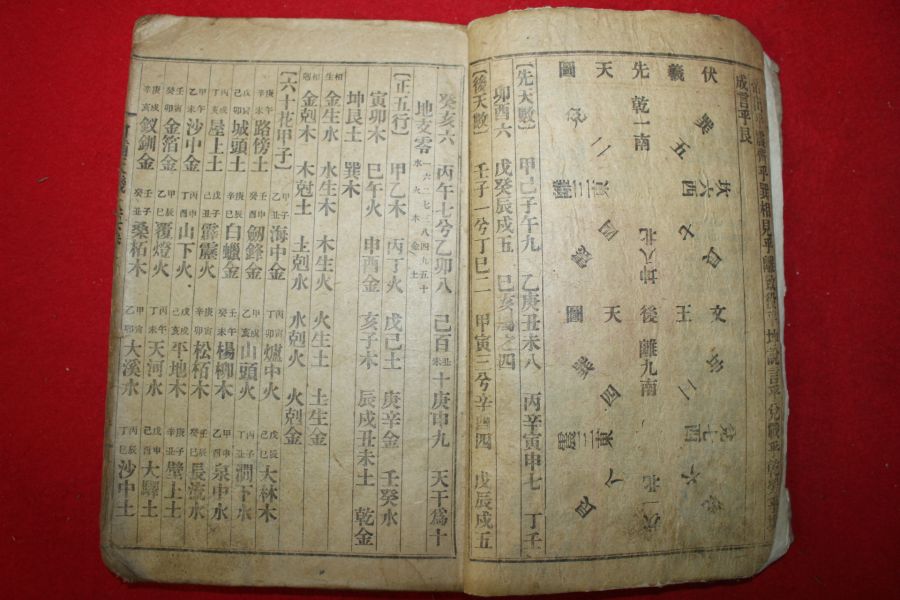 伏羲先天圖
巽五
坎六西
乾一南
坤八北
文王
後天圖
離九南
坎一北
〔先天數〕 甲己子午九 乙庚丑未八 丙辛寅申七 丁壬
卯酉六 戊癸辰戌五 巳亥屬之四
〔後天數〕 壬子一兮丁巳二 甲寅三兮辛酉四 戊辰戌五
癸亥六 丙午七兮乙卯八 己百丑未十庚申九 天干爲十
地支零 一六水二七火三八木四九金五十土
〔正五行〕 甲乙木 丙丁火 戊己土 庚辛金 壬癸水
寅卯木 巳午火 申酉金 亥子木 辰戌丑未土 乾金
坤艮土 巽木
相生 金生水 水生木 木生火 火生土 土生金
相剋 金剋木 木剋土 土剋水 水剋火 火剋金
〔六十花甲子〕 甲子乙丑海中金 丙寅丁卯爐中火 戊辰己巳大林木
庚午辛未路傍土 壬申癸酉劒鋒金 甲戌乙亥山頭火 丙子丁丑澗下水
戊寅己卯城頭土 庚辰辛巳白蠟金 壬午癸未楊柳木 甲申乙酉泉中水
丙戌丁亥屋上土 戊子己丑霹靂火 庚寅辛卯松栢木 壬辰癸巳長流水
甲午乙未沙中金 丙申丁酉山下火 戊戌己亥平地木 庚子辛丑壁上土
壬寅癸卯金箔金 甲辰乙巳覆燈火 丙午丁未天河水 戊申己酉大驛土
庚戌辛亥釵釧金 壬子癸丑桑柘木 甲寅乙卯大溪水 丙辰丁巳沙中土